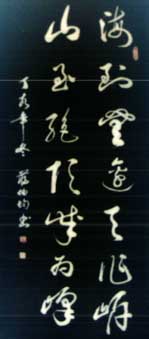 海到無邊天作岸
山絕頂我為峰
丁亥年冬